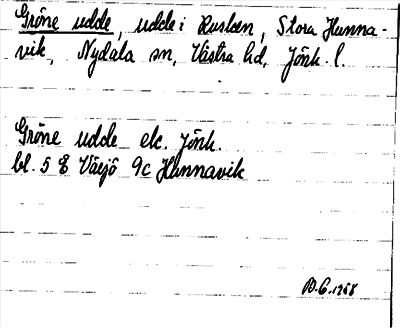 Gröne udde, udde i Rusken, Stora Hunna-
vik, Nydala sn, Västra hd, Jönk. l.
Gröne udde ek. Jönk.
bl. 5 E Växjö 9c Hunnavik
B.G. 1968